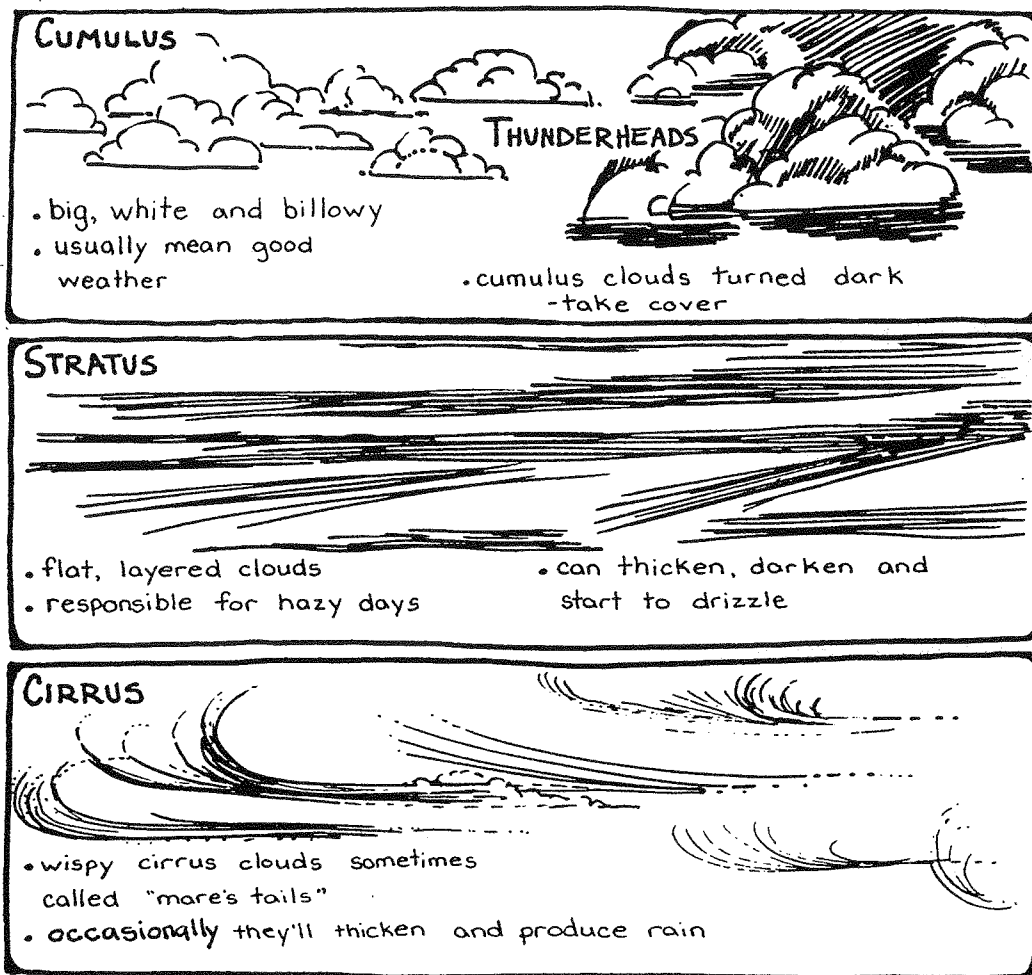 CUMULUS
THUNDERHEADS
• big, white and billowy
• usually mean good
weather
• cumulus clouds turned dark
-take cover
STRATUS
• flat, layered clouds
• responsible for hazy days
• can thicken, darken and
start to drizzle
CIRRUS
• wispy cirrus clouds sometimes
called "mare's tails"
• occasionally they'll thicken and produce rain